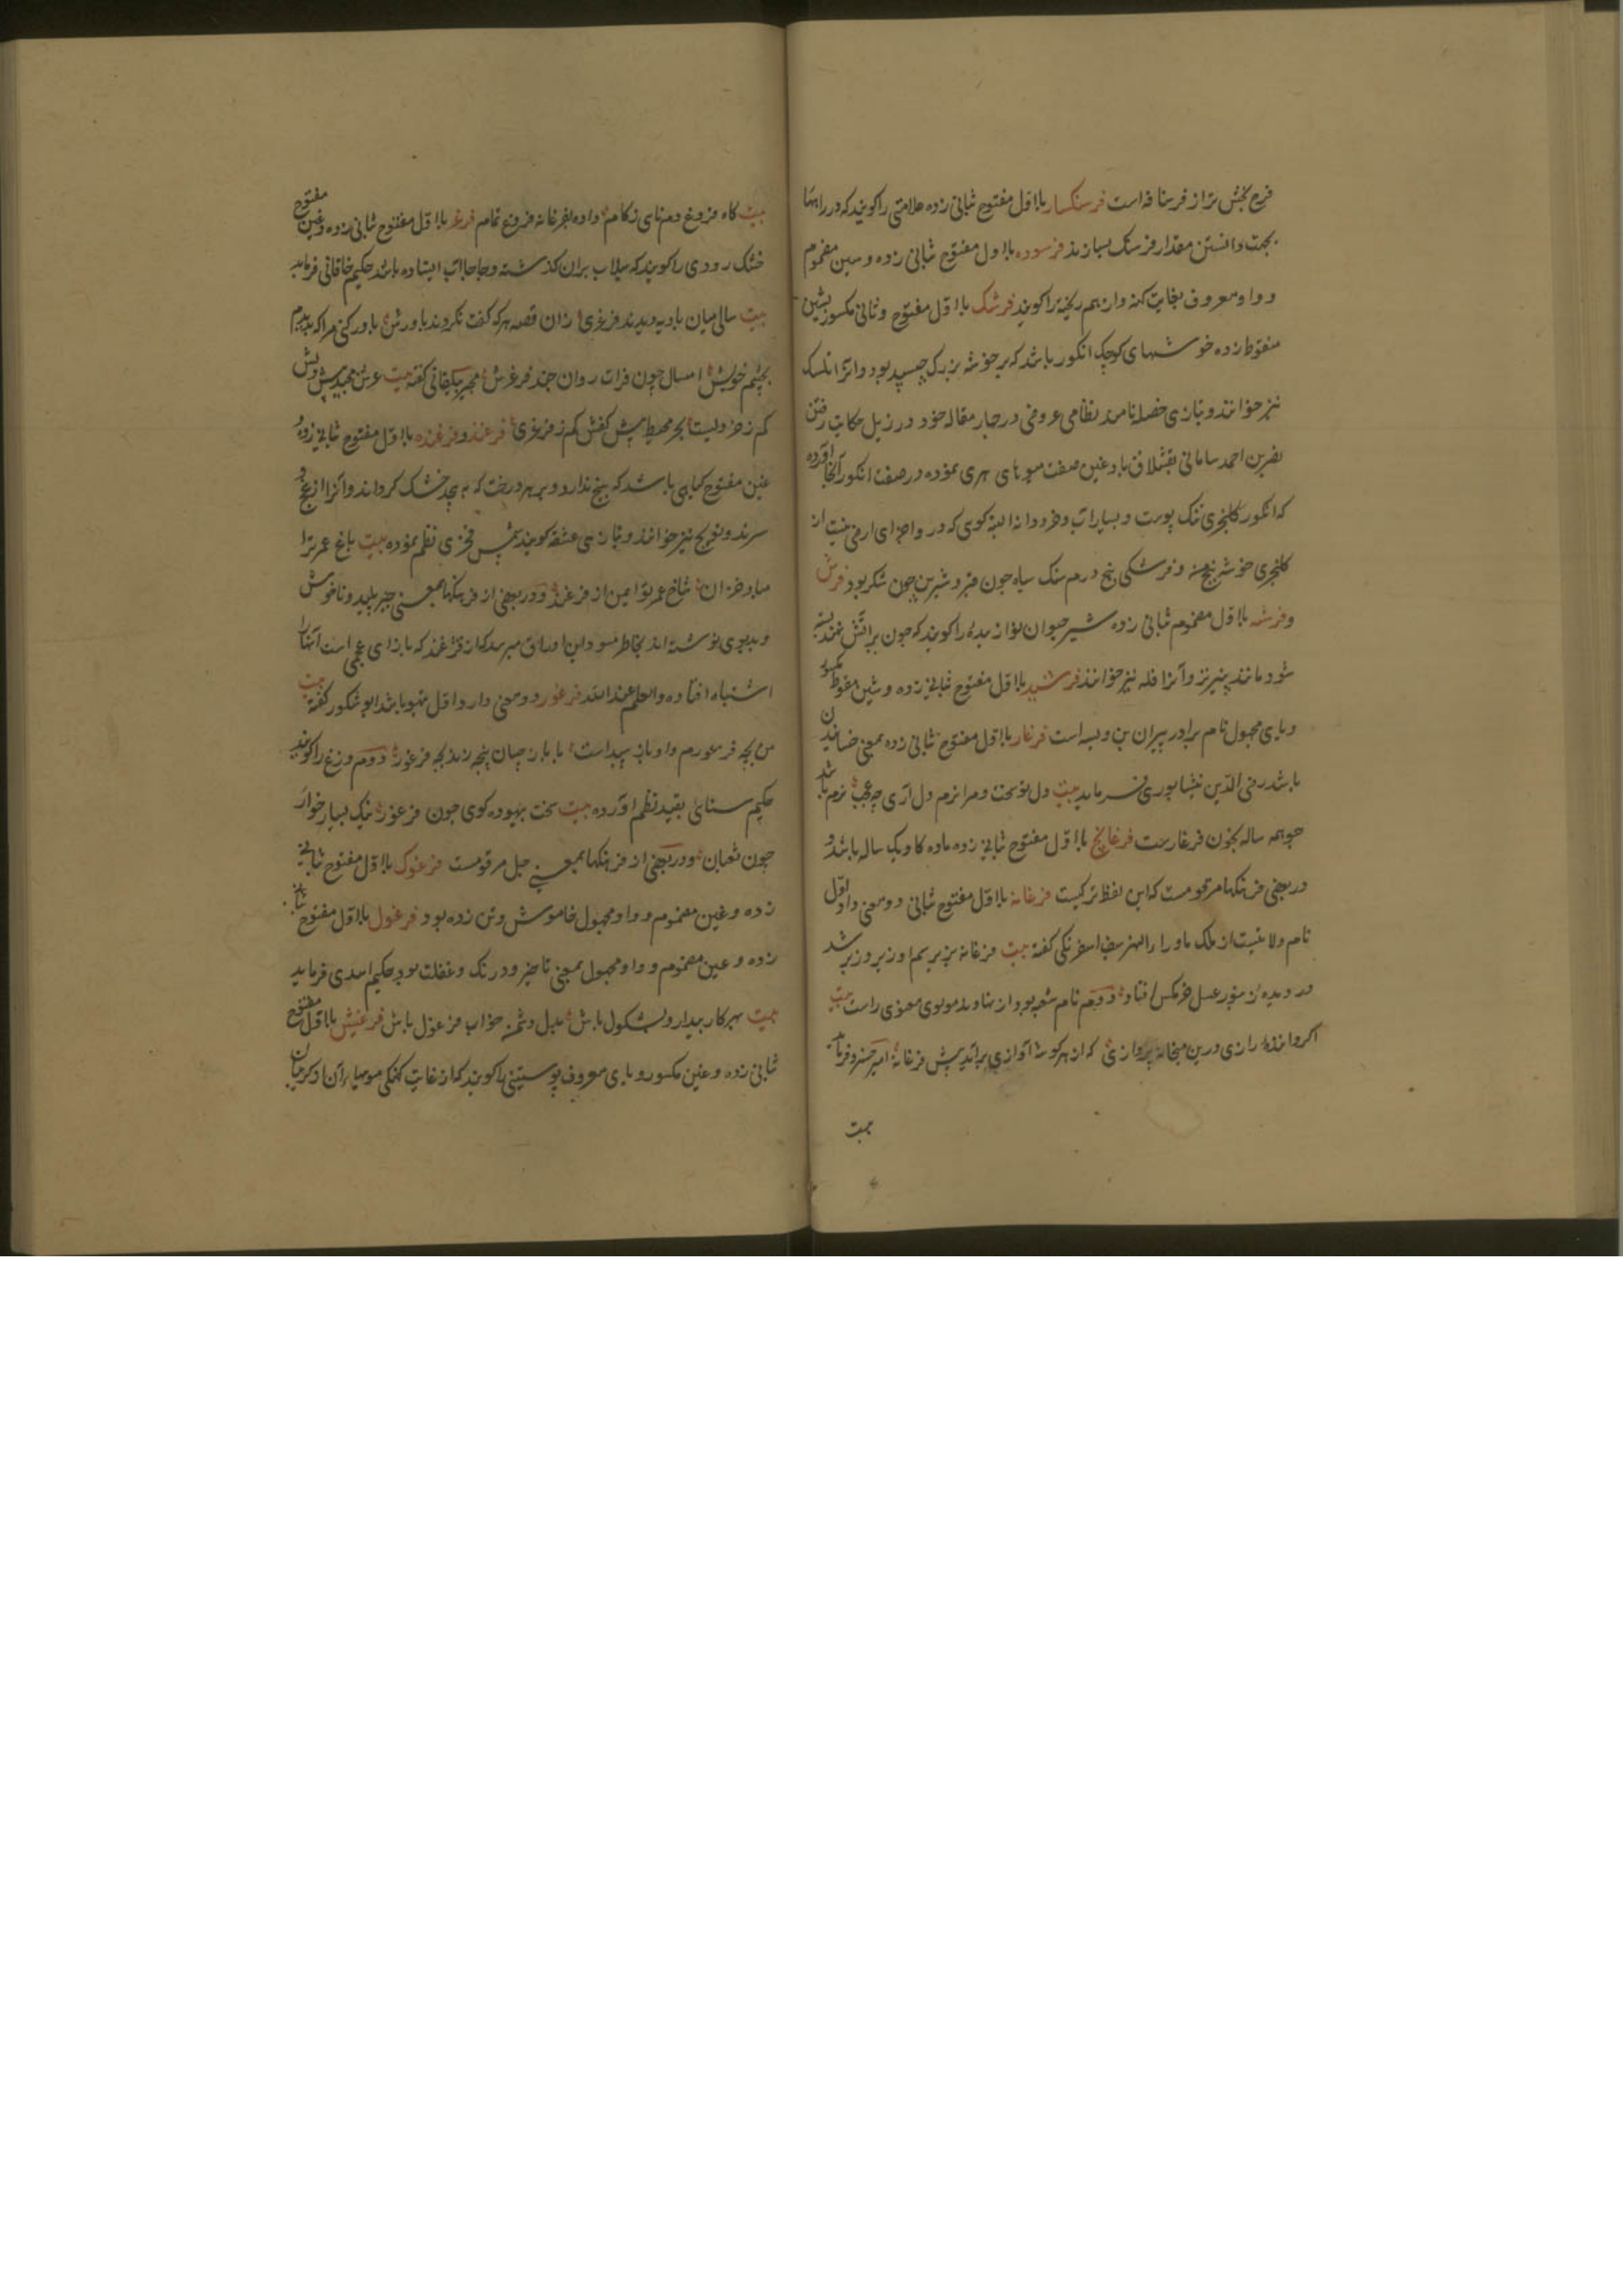 فرح بخش تر از فرسنافه است فرسنکسار با اول مفتوح ثبانی زده علامتی را کویند که در راهها
بجهت دانستن مقدار فرسنک بسازند فرسوده با اول مفتوح ثبانی زده و سین مضموم
و واو معروف بغایت کهنه و از هم ریخته را کویند فرشک با اول مفتوح و ثانی مکسور بشین
منقوط زده خوشهای کوچک انکور باشد که بر خوشه بزرک چسپیده بود و انرا تلسک
نیز خوانند و بتازی خصله نامند نظامی عروضی در چار مقاله خود در ذیل حکایت رفتن
نصر بن احمد سامانی بقشلاق بادغین صفت میوهای هری نموده در صفت انکور آنجا آورده
که انکور کلنجری تنک پوست و بسیار آب و خرد دانه البته کوی که در و اجزای ارضی نیست از
کلنجری خوشه پنج من و فرشکی پنج درم سنک سیاه چون قیر و شیرین چون شکر بود فرش
و فرشه با اول مضموم ثبانی زده شیر حیوان نوزائیده را کویند که چون بر آتش نهند بسته
شود مانند پنیر تر و آنرا فله نیز خوانند فرشید با اول مفتوح ثبانی زده و شین منقوط مکسور
و یای مجهول نام برادر پیران بن ویسه است فرغار با اول مفتوح ثبانی زده بمعنی خساندن
باشد رضی الدین نیشاپوری فرماید بیت دل تو سخت و مرا نرم دل آری چه عجب نرم باشد
چو همه ساله بخون فرغارست فرغانج با اول مفتوح ثبانی زده ماده کاو یک ساله باشد و
در بعضی فرهنکها مرقومست که این لفظ ترکیست فرغانه با اول مفتوح ثبانی دو معنی دارد اول
نام ولایتیست از ملک ماورا النهر سیف اسفرنکی کفته بیت فرغانه بریر بسم او زیر و زبر شد
در دیده زنبور عسل خرمکس افتاد دویم نام شعبه بود از نهاوند مولوی معنوی راست بیت
اکر داننده رازی درین میخانه پروازی که از هر کوشه آوازی برآید پیش فرغانه امیر خسرو فرماید
بیت
بیت کاه فروغ دم نای زکام داده بفرغانه فروغ تمام فرغر با اول مفتوح ثبانی زده و غین مفتوح
خشک رودی را کویند که سیلاب بران کذشته و جابجا آب ایستاده باشد حکیم خاقانی فرماید
بیت سالی میان بادیه دیدند فرغری زان قصه هر که کفت نکردند باورش باور کنی مرا که بدیدم
بچشم خویش امسال چون فرات روان چند فرغرش مجیر بیلقانی کفته بیت عرش مجید پیش دلش
کم ز خردلیست بحر محیط پیش کفش کم ز فرغری فرغند و فرغنده با اول مفتوح ثبانی زده
غین مفتوح کیاهی باشد که بیخ ندارد و بر هر درخت که بپیچد خشک کرداند و آنرا ازغج و
سرند و نوریج نیز خوانند و بتازی عشقه کویند شمس فخری نظم نموده بیت باغ عمر ترا
مباد خزان شاخ عمر تو ایمن از فرغند و در بعضی از فرهنکها بمعنی چیز پلید و ناخوش
و بدبوی نوشته اند بخاطر مسود این اوراق میرسد که از فژغند که با زای عجمی است آنها را
اشتباه افتاده والعلم عند الله فرغور دو معنی دارد اول تیهو باشد ابو شکور کفته بیت
من بچه فرغورم و او باز سپیداست با باز چسان پنجه زند بچه فرغور دویم وزغ را کویند
حکیم سنائی بقید نظم آورده بیت سخت بیهوده کوی چون فرغور نیک بسیار خوار
چون ثعبان و در بعضی از فرهنکها بمعنی جبل مرقومست فرغوک با اول مفتوح ثبانی
زده و غین مضموم و واو مجهول خاموش و تن زده بود فرغول با اول مفتوح ثبانی
زده و غین مضموم و واو مجهول بمعنی تاخیر و درنک و غفلت بود حکیم اسدی فرماید
بیت بهر کار بیدار و بشکول باش بدل دشمن خواب فرغول باش فرغیش با اول مفتوح
ثبانی زده و غین مکسور و یای معروف پوستینی را کویند که از غایت کهنکی مویها از آن و کریبان